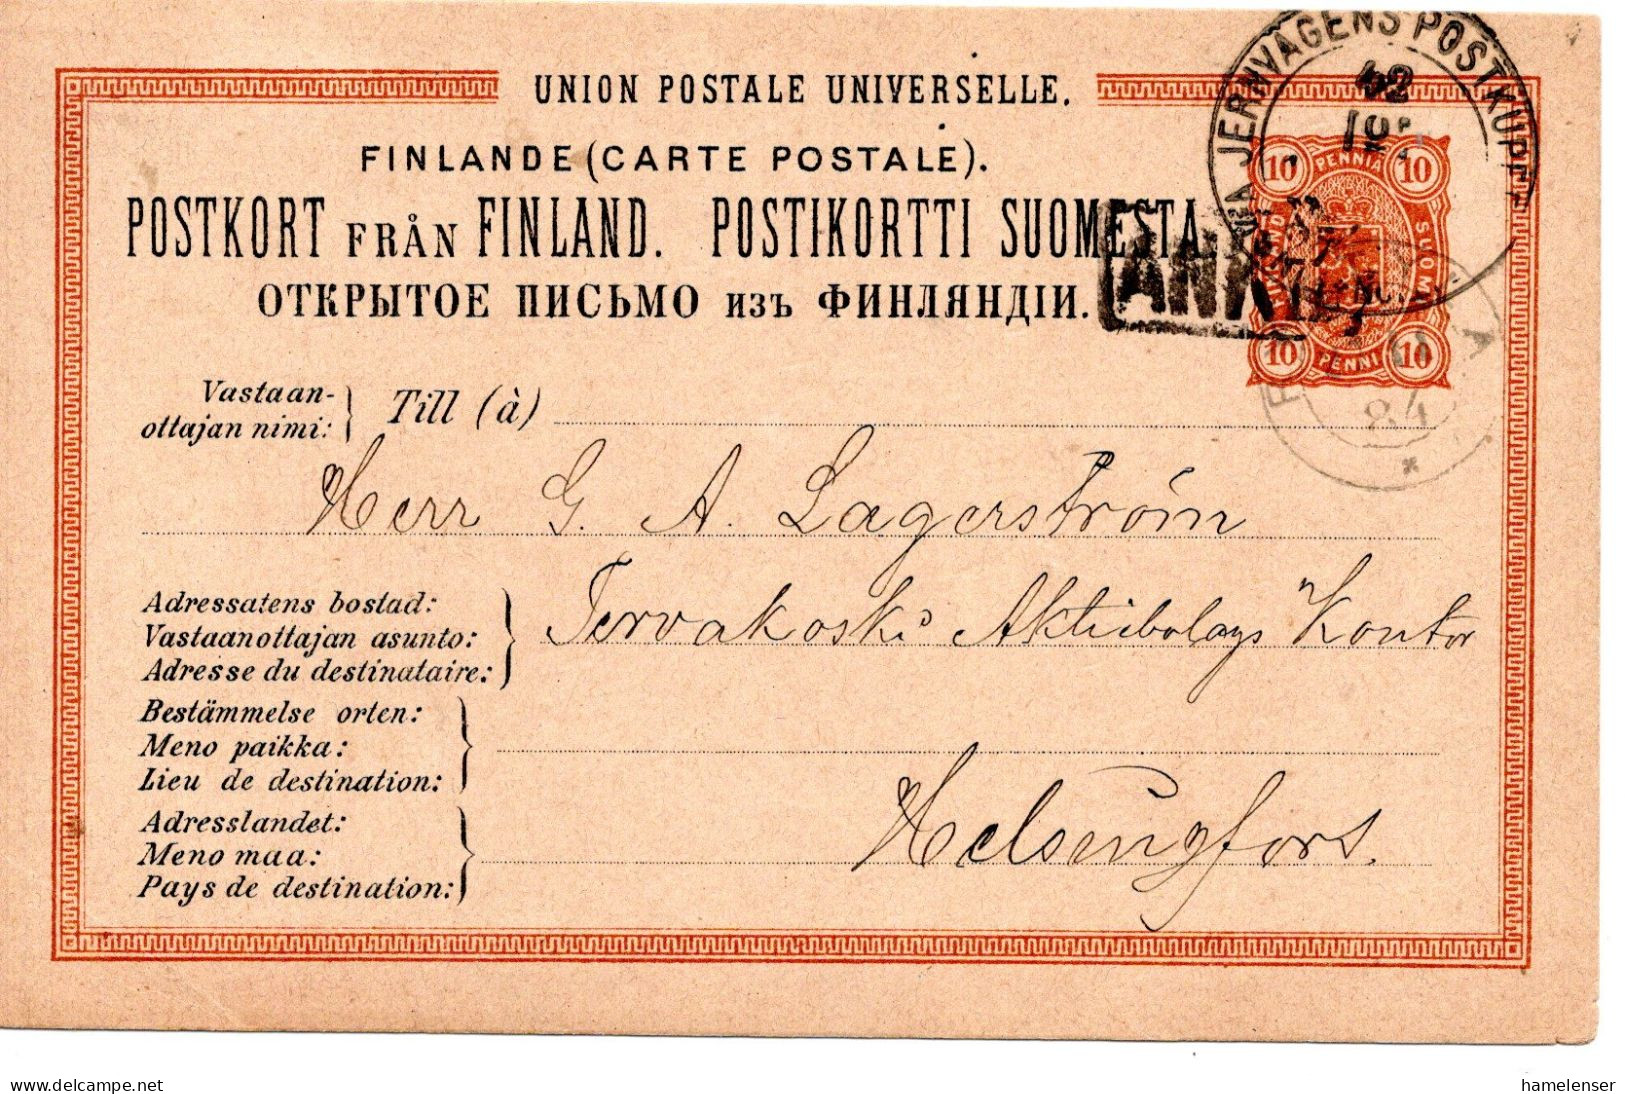 UNION POSTALE UNIVERSELLE.
FINLANDE (CARTE POSTALE).
POSTKORT FRÅN FINLAND. POSTIKORTTI SUOMESTA.
ОТКРЫТОЕ ПИСЬМО изъ ФИНЛЯНДІИ.
JERNVÄGENS POSTKUPÉ
42
ANK
10 PENNIÄ 10
SUOMI
10 PENNI 10
84
Vastaan-
ottajan nimi:
Till (à)
Herr G. A. Lagerström
Adressatens bostad:
Vastaanottajan asunto:
Adresse du destinataire:
Tervakoski Aktiebolags Kontor
Bestämmelse orten:
Meno paikka:
Lieu de destination:
Adresslandet:
Meno maa:
Pays de destination:
Helsingfors.
hamelenser